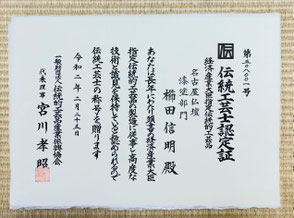 第二〇八〇〇一号
伝統工芸士認定証
経済産業大臣指定伝統的工芸品
名古屋仏壇
漆塗部門
櫛田信明殿
あなたは長年にわたり頭書の経済産業大臣
指定伝統的工芸品の製造に従事し高度な
技術と識見を保持していると認められるので
伝統工芸士の称号を贈ります
令和二年二月二十五日
一般財団法人伝統的工芸品産業振興協会
代表理事 宮川孝昭